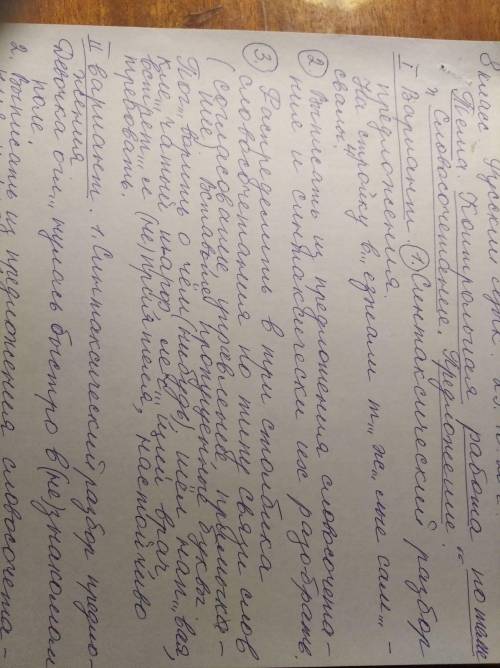 8 класс Русский язык.
Тема. Контрольная работа по теме
" Словосочетание. Предложение."
I Вариант. ① Синтаксический разбор
предложения.
На стройку в...езжали т...ж...лые сам...-
свалы.
② Выписать из предложения словосочета-
ния и синтаксически их разобрать.
③ Распределить в три столбика
словосочетания по типу связи слов
(согласование, управление, примыка-
ние) Вставьте пропущенные буквы.
Пог...ворить о чём(нибудь), шёл нап...вая,
встрет...л (не)приятеля, настойчиво
требовать.
II вариант. 1. Синтаксический разбор предло-
жения
Девочка огл...нулась быстро в (не)знакомом
поле.
2. Выписать из предложения словосочета-